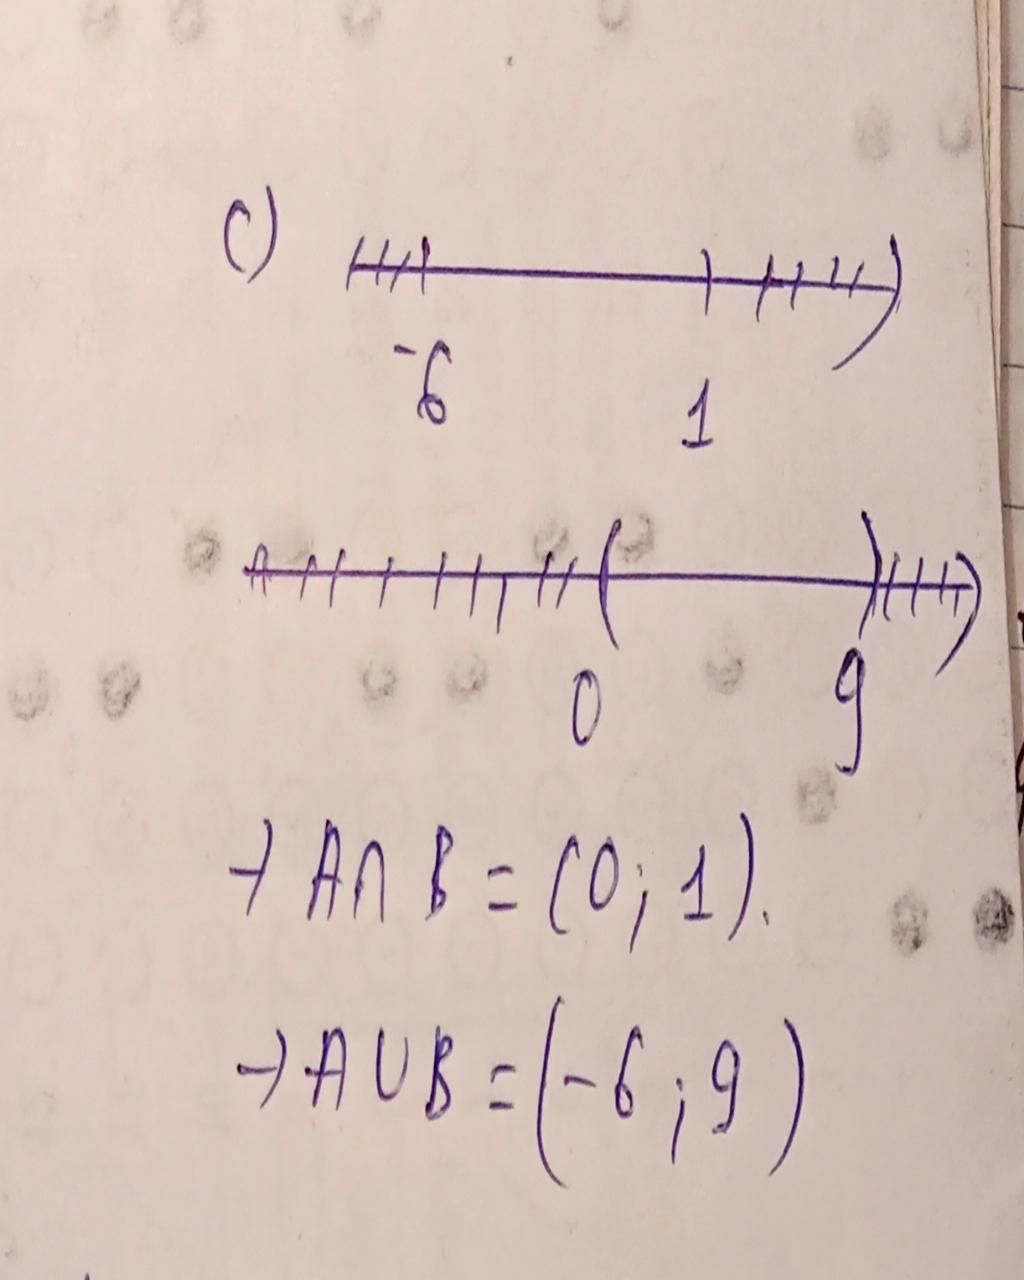 c)
-6 1
0 9
→ A∩B = (0; 1).
→ A∪B = (-6; 9)